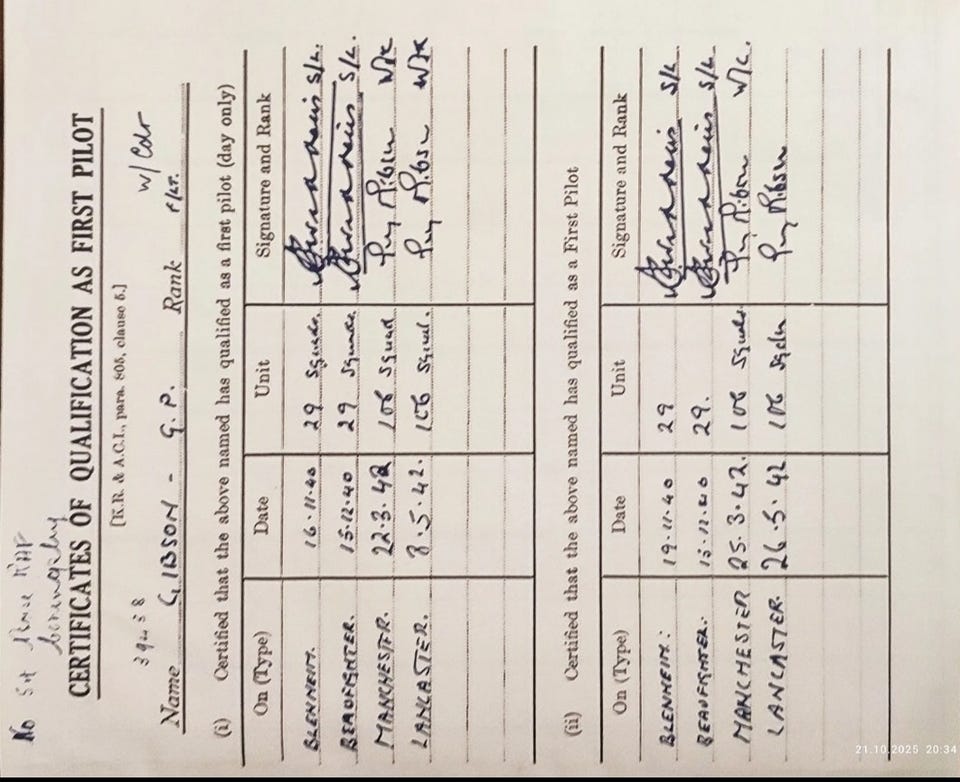 No
CERTIFICATES OF QUALIFICATION AS FIRST PILOT
[K.R. & A.C.I., para. 805, clause 5.]
W/Cdr
Name GIBSON - G.P. Rank F/LT.
(i) Certified that the above named has qualified as a first pilot (day only)
On (Type) Date Unit Signature and Rank
BLENHEIM. 16.11.40 29 S/L.
BEAUFIGHTER. 15.12.40 29 S/L.
MANCHESTER. 22.3.42 106 Guy Gibson W/C
LANCASTER. 8.5.42. 106 Guy Gibson
(ii) Certified that the above named has qualified as a First Pilot
On (Type) Date Unit Signature and Rank
BLENHEIM: 19.11.40 29 S/L
BEAUFIGHTER. 29. S/L
MANCHESTER 25.3.42. 106 Guy Gibson W/C.
LANCASTER. 26.5.42 106 Guy Gibson
21.10.2025 20:34